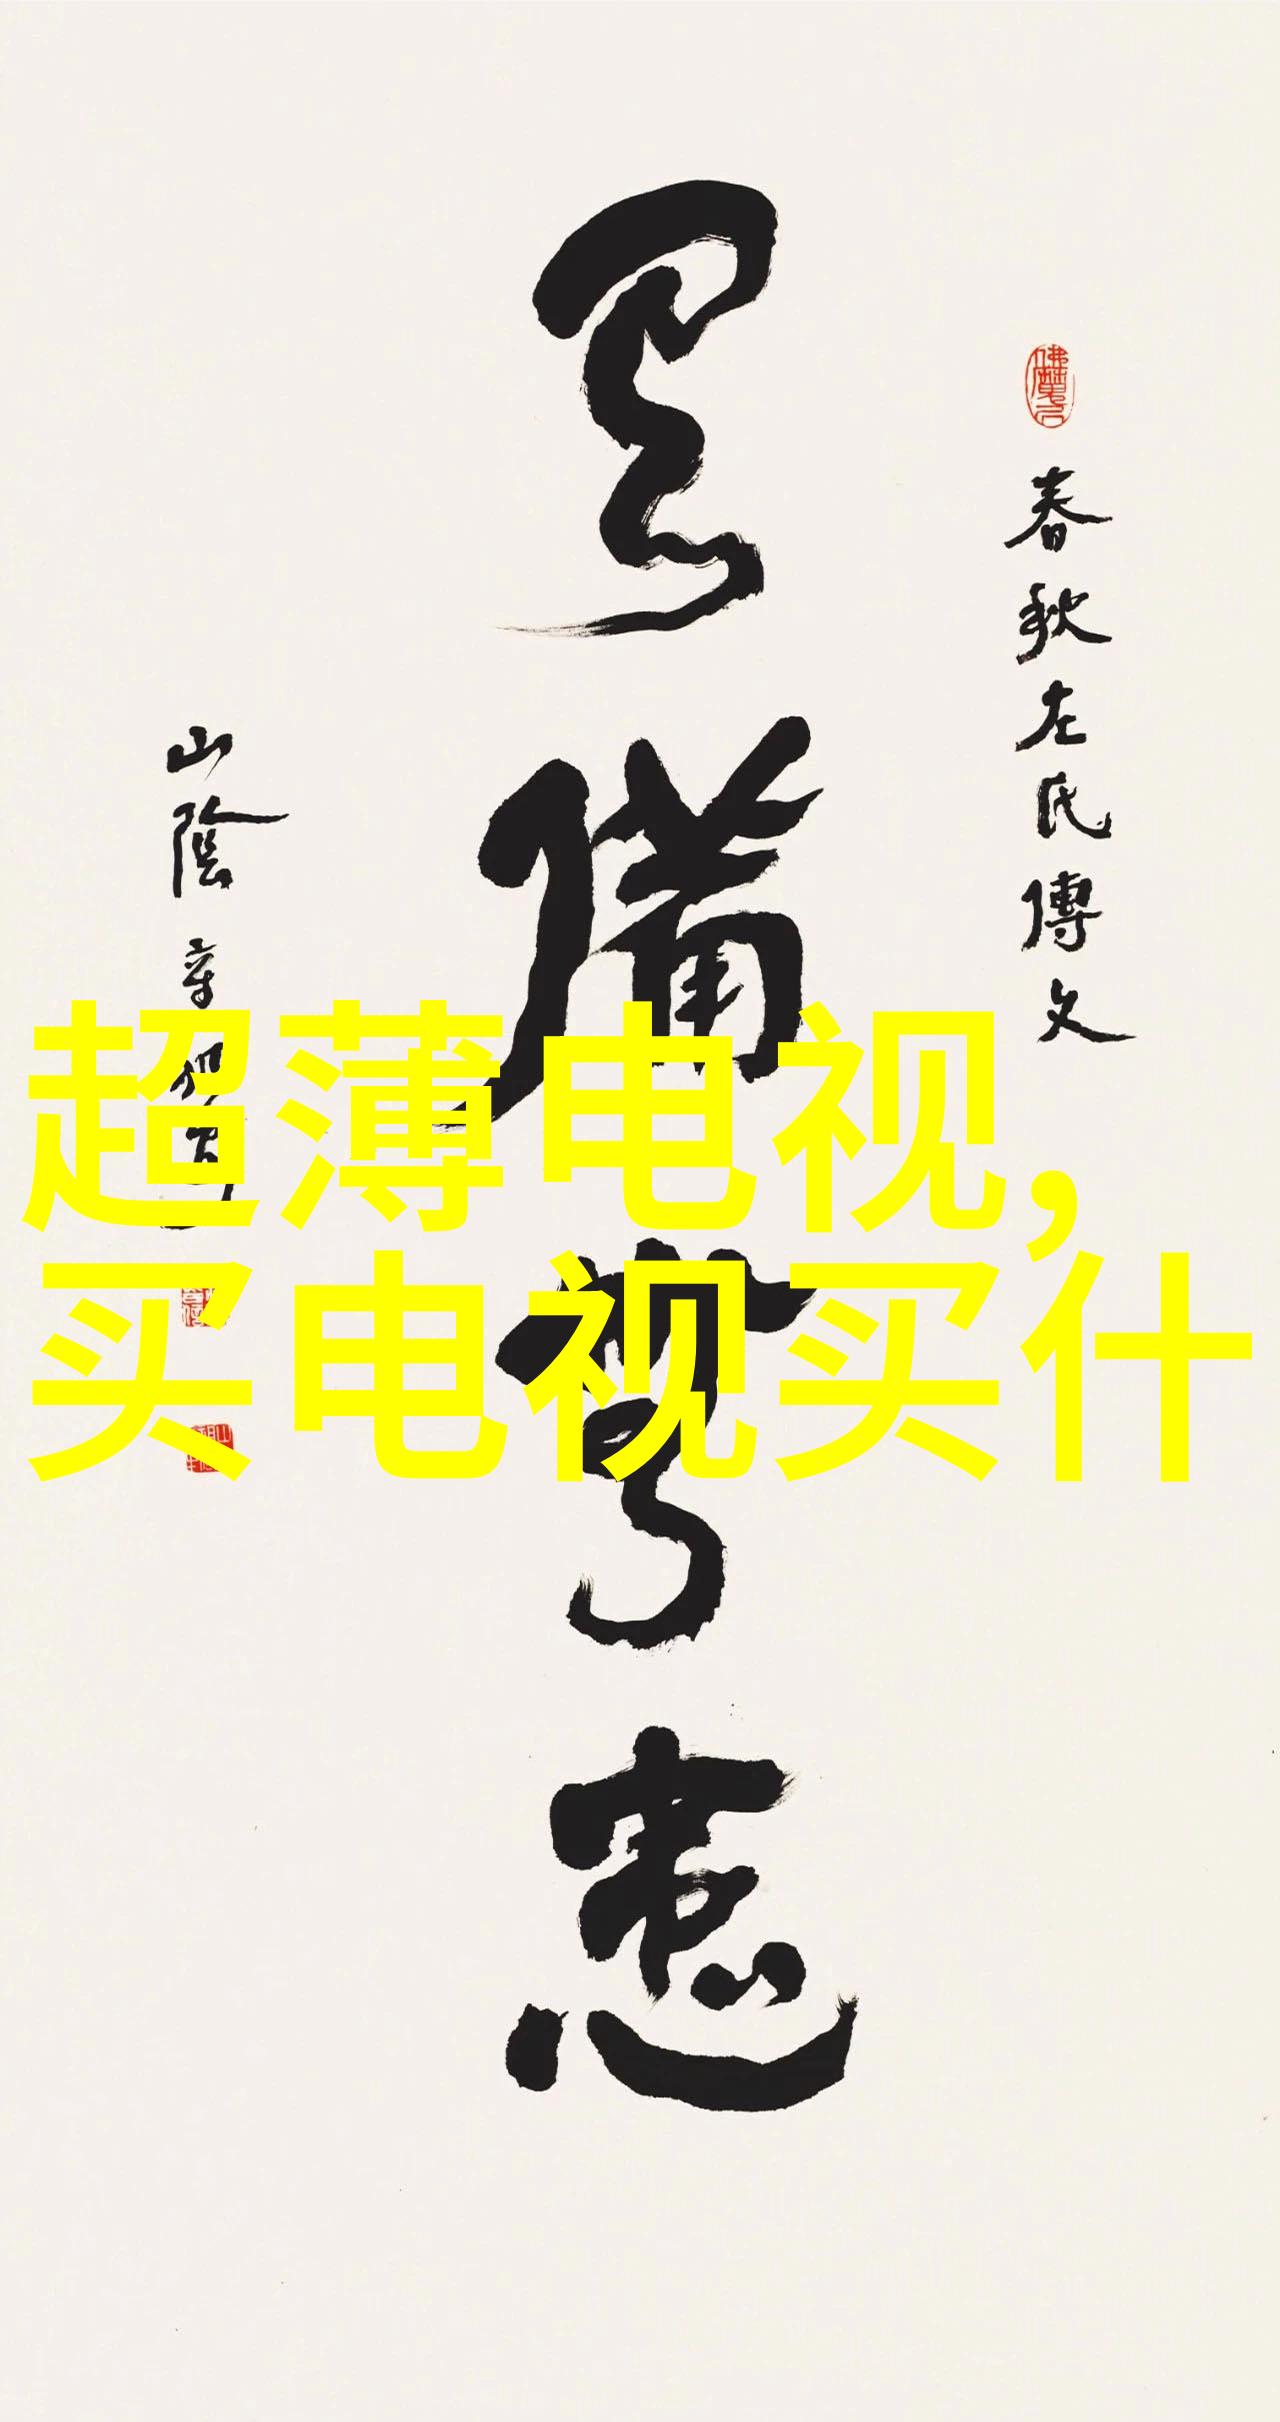 有備無患
春秋左氏傳文
山陰
超薄电视，
买电视买什